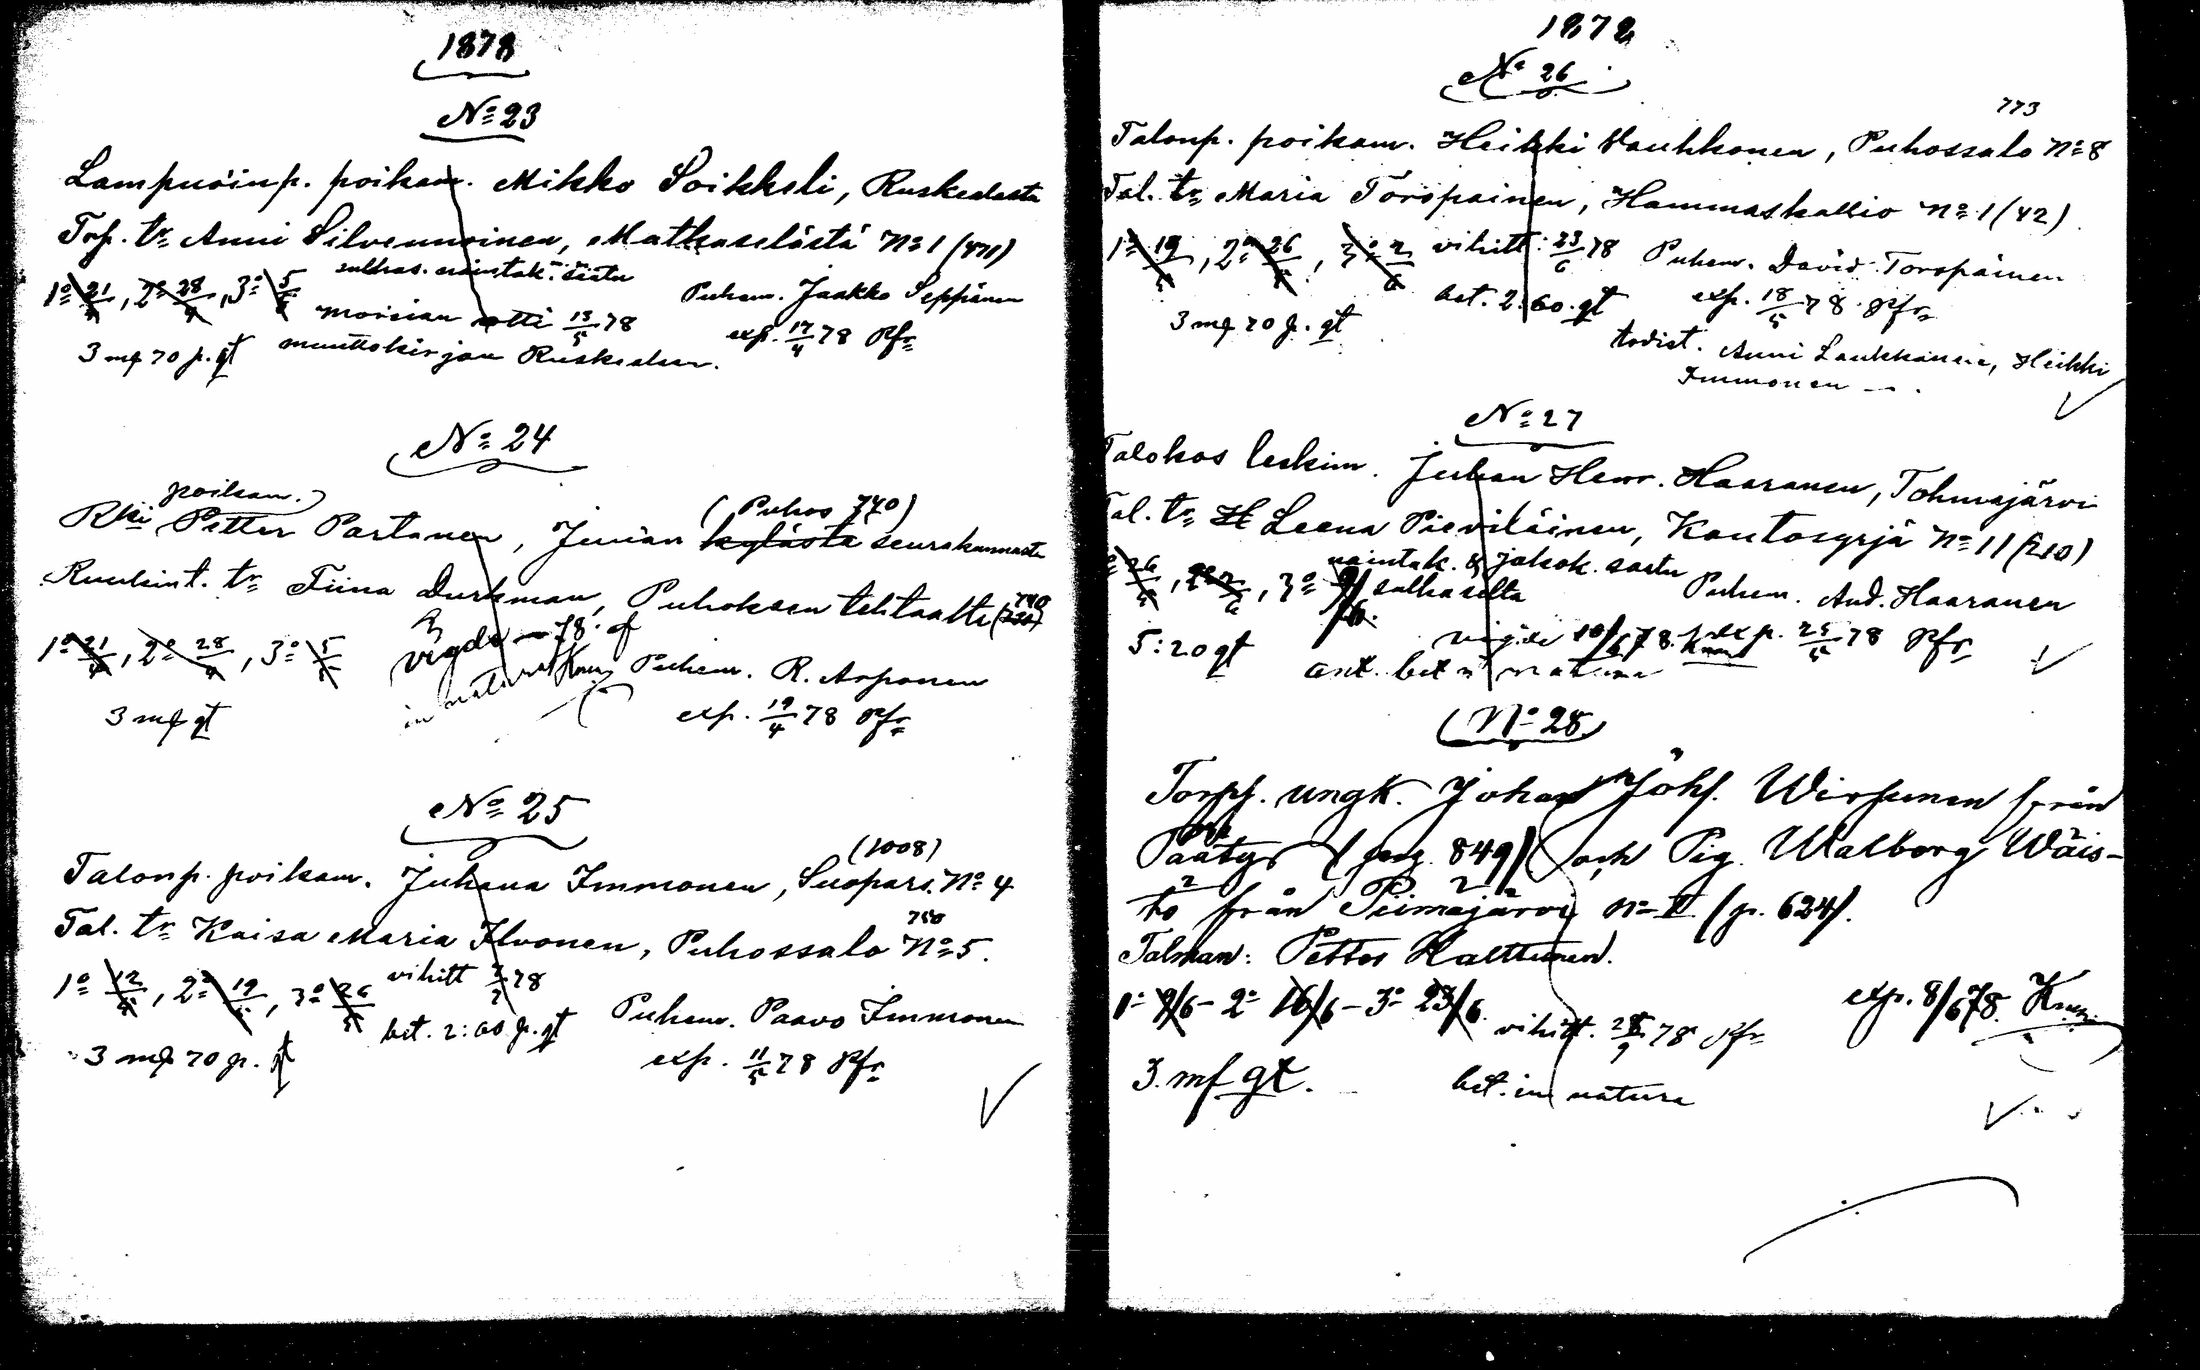 1878
No 23
Lampuoinp. poikam. Mikko Soikkeli, Ruskealasta
Torp. tr. Anni Silvennoinen, Matkaselästä No 1 (471)
1o 21/4, 2o 28/4, 3o 5/5 sulhas. naintak. säätu
Puhem. Jaakko Seppänen
morsian otti 13/5 78
exp. 17/4 78 Pfr
3 mk 70 p. gt muuttokirjan Ruskealaan.
No 24
poikam. (Puhos 740)
Rki Petter Partanen, Juuan kylästä seurakunnasta
Ruukint. tr. Tiina Durkman, Puhoksen tehtaalta 740
1o 21/4, 2o 28/4, 3o 5/5
vigde 78. af
in natura
Puhem. R. Asponen
3 mk gt
exp. 19/4 78 Pfr
No 25
(1008)
Talonp. poikam. Juhana Immonen, Suopars. No 4
Tal. tr. Kaisa Maria Ilvonen, Puhossalo No 5.
1o 12/5, 2o 19/5, 3o 26/5 vihitt 78
bet. 2:60 p. gt Puhem. Paavo Immonen
3 mk 70 p. gt
exp. 11/5 78 Pfr
1878
No 26
773
Talonp. poikam. Heikki Vauhkonen, Puhossalo No 8
Tal. tr. Maria Toropainen, Hammaskallio No 1 (42)
1o 19/5, 2o 26/5, 3o 2/6 vihitt: 23/6 78 Puhem. David Toropainen
bet. 2.60. gt exp. 18/5 78. Pfr
3 mk 70 p. gt
todist. Anni Laukkanen, Heikki
Immonen
No 27
Talokas leskim. Juhan Henr. Haaranen, Tohmajärvi
Tal. tr. H Leena Pieviläinen, Kantosyrjä No 11 (210)
26/5, 2o 2/6, 3o 9/6. naintak. & jakok. saatu
sulhaselta Puhem. And. Haaranen
5:20 gt vigde 10/6 78. exp. 25/5 78 Pfr
ant. bet in natura
No 28
Torpp. ungk. Johan Johs. Wirsunen från
Päätys (pag. 849) och Pig. Walborg Wäis-
tö från Piimäjärvi No II (p. 624).
Talman: Petter Halttunen.
1o 9/6 - 2o 16/6 - 3o 23/6. exp. 8/6 78.
vihitt. 78 Pfr
3. mk gt.
bet. in natura